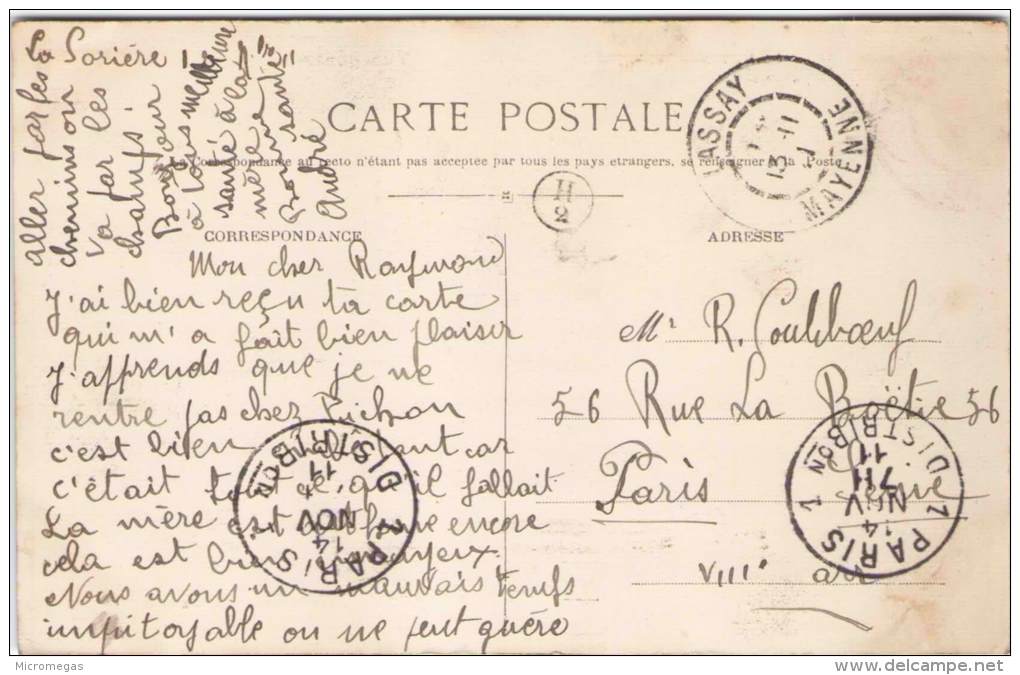 CARTE POSTALE
La Correspondance au recto n'étant pas acceptée par tous les pays etrangers, se renseigner à la Poste
CORRESPONDANCE
ADRESSE
Mon cher Raymond
J'ai bien reçu ta carte
qui m'a fait bien plaisir
J'apprends que je ne
rentre pas chez
c'est bien car
c'était tout ce qu'il fallait
La mère est encore
cela est bien ennuyeux.
Nous avons un mauvais temps
impitoyable on ne peut guère
aller par les
chemins on
va par les
champs.
Bonjour
à tous meilleure
santé à la
mère
Bonne santé
André
La Sorière
Mr R. Coulbœuf
56 Rue La Boëtie 56
Paris Seine
VIIIe arr
LASSAY
MAYENNE
13 -11
H
PARIS 1 DISTRIBON
14 NOV
11
PARIS 1 DISTRIBON
7H
14 NOV
11
Micromegas
delcampe.net